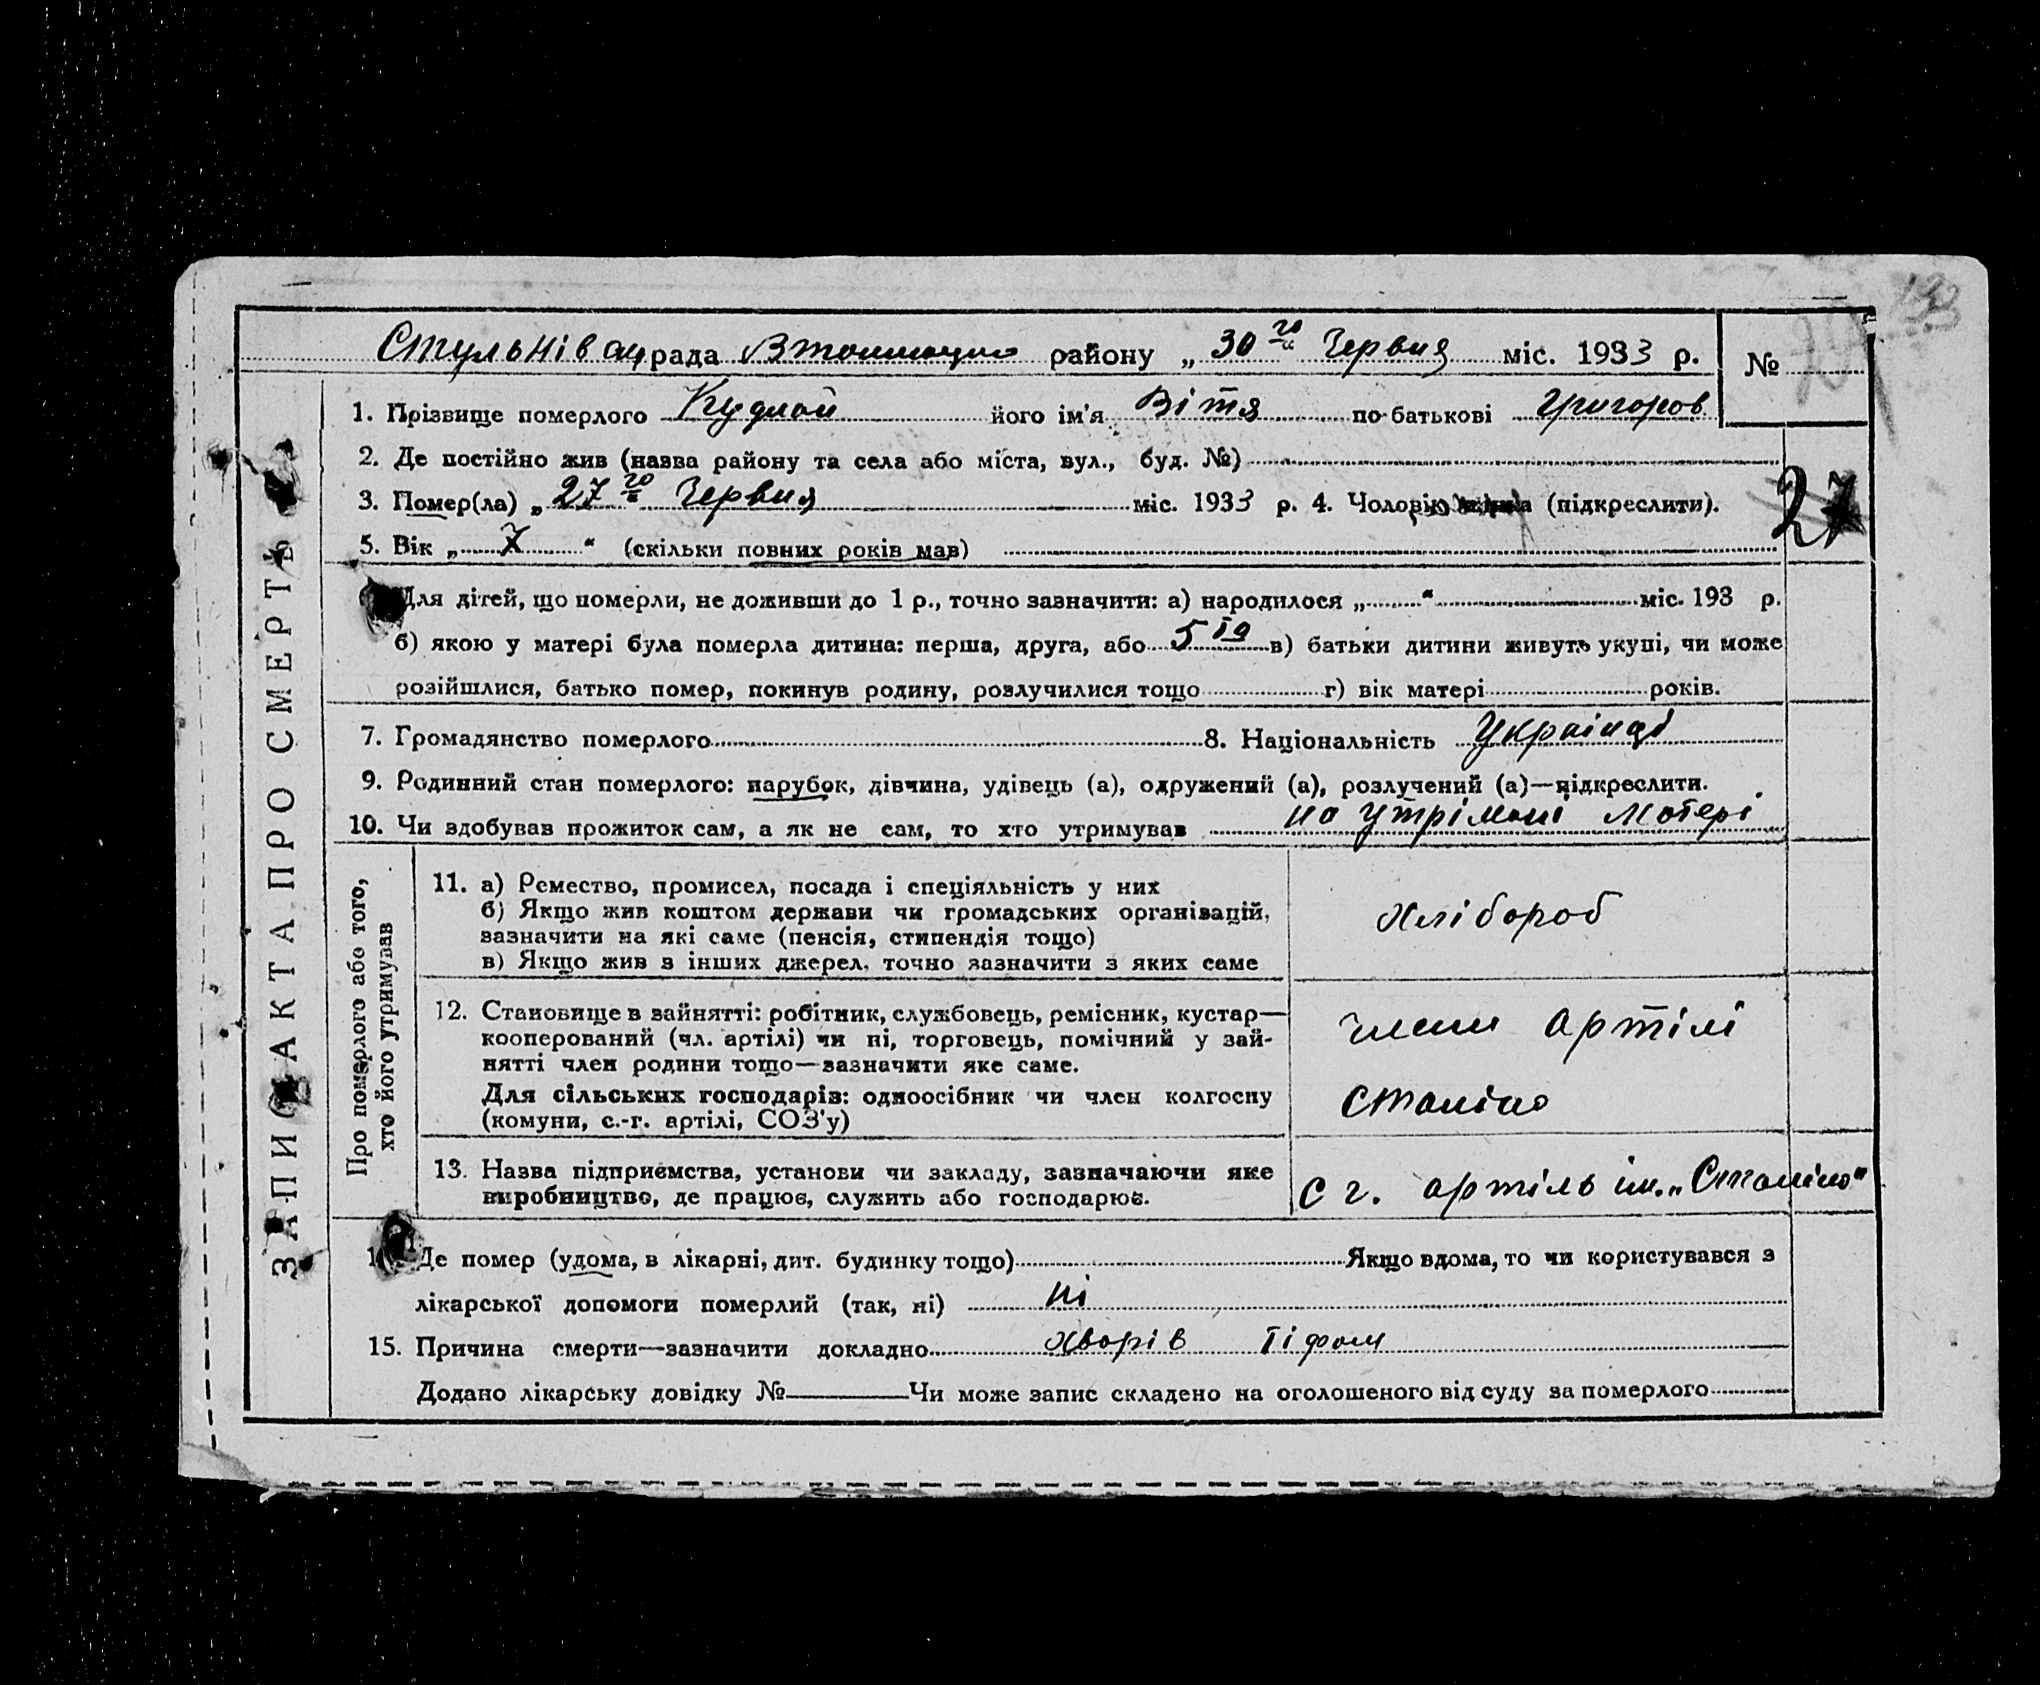 рада району „30 го“ Червня міс. 1933 р. №
133
1. Прізвище померлого Кудлай його ім'я Вітя по-батькові Григоров
2. Де постійно жив (назва району та села або міста, вул., буд. №)
3. Помер(ла) „27 го“ Червня міс. 1933 р. 4. Чоловік, (підкреслити).
27
5. Вік „ “ (скільки повних років мав)
Для дітей, що померли, не доживши до 1 р., точно зазначити: а) народилося „ “ міс. 193 р.
б) якою у матері була померла дитина: перша, друга, або 5 та в) батьки дитини живуть укупі, чи може
розійшлися, батько помер, покинув родину, розлучилися тощо г) вік матері років.
7. Громадянство померлого 8. Національність
9. Родинний стан померлого: парубок, дівчина, удівець (а), одружений (а), розлучений (а)—підкреслити.
10. Чи здобував прожиток сам, а як не сам, то хто утримував на утріманні Матері
11. а) Ремество, промисел, посада і спеціяльність у них
б) Якщо жив коштом держави чи громадських організацій,
зазначити на які саме (пенсія, стипендія тощо)
в) Якщо жив з інших джерел, точно зазначити з яких саме
хлібороб
12. Становище в зайнятті: робітник, службовець, ремісник, кустар—
кооперований (чл. артілі) чи ні, торговець, помічний у зай-
нятті член родини тощо—зазначити яке саме.
Для сільських господарів: одноосібник чи член колгоспу
(комуни, с.-г. артілі, СОЗ'у)
члени артілі
Сталіна
13. Назва підприємства, установи чи закладу, зазначаючи яке
виробництво, де працює, служить або господарює.
с г. артіль ім. „Сталіна“
Де помер (удома, в лікарні, дит. будинку тощо) Якщо вдома, то чи користувався з
лікарської допомоги померлий (так, ні) ні
15. Причина смерти—зазначити докладно хворів тіфом
Додано лікарську довідку № Чи може запис складено на оголошеного від суду за померлого
ЗАПИС АКТА ПРО СМЕРТЬ
Про померлого або того,
хто його утримував